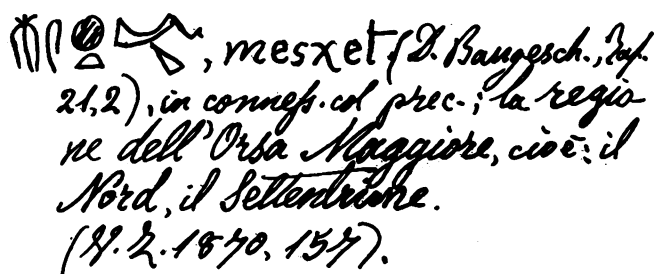 𓄟𓋴𓐍𓏏𓄘, mesχet (D. Baugesch., Taf.
21,2), in conness. col prec.; la regio
ne dell'Orsa Maggiore, cioè: il
Nord, il Settentrione.
(V. Z. 1870, 157).